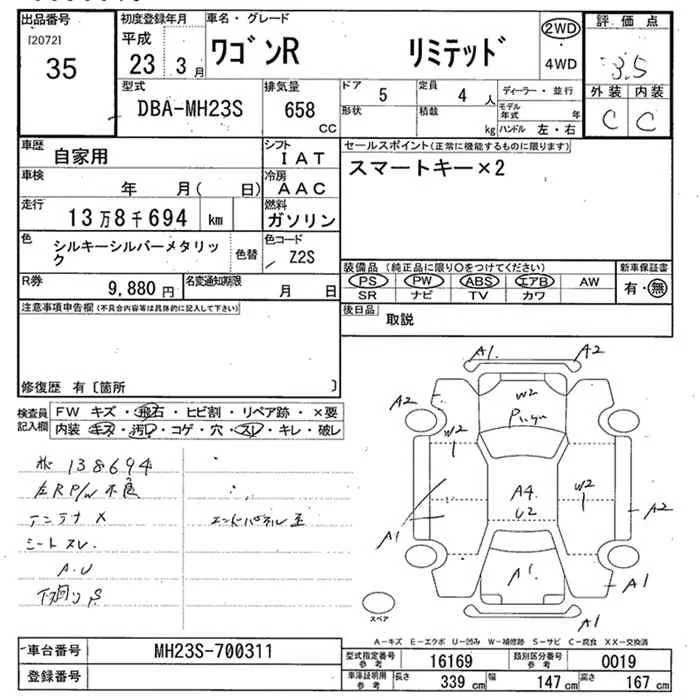 出品番号 初度登録年月 車名・グレード 評価点
[2072] 平成 ワゴンR リミテッド 2WD
35 23 3月 ・ 3.5
4WD
型式 排気量 ドア 5 定員 4 人 ディーラー・並行 外装 内装
DBA-MH23S 658 CC 形状 積載 kg モデル年式 年 C C
ハンドル 左・右
車歴 自家用 シフト IAT セールスポイント(正常に機能するものに限ります)
車検 年 月( 日) 冷房 AAC スマートキー×2
走行 13万8千694 km 燃料 ガソリン
色 シルキーシルバーメタリック 色替 色コード Z2S
R券 9,880円 名変通知期限 月 日
装備品(純正品に限り○をつけてください) 新車保証書
PS PW ABS エアB AW 有・無
SR ナビ TV カワ
注意事項申告欄(不具合内容等は具体的に記入して下さい)
後日品 取説
修復歴 有〔箇所 〕
検査員記入欄 FW キズ・飛石・ヒビ割・リペア跡・×要
内装 キズ・汚レ・コゲ・穴・スレ・キレ・破レ
138694
左RP/W不良
アンテナ X
エンドパネル
シートスレ.
A.U
A1 A2
A2 W2
W2 1
A4 U2
W2 1
A2
A1
A1 A1
A1
スペア
A-キズ E-エクボ U-凹み W-補修跡 S-サビ C-腐食 XX-交換済
車台番号 MH23S-700311
登録番号
型式指定番号 参考 16169 類別区分番号 参考 0019
車庫証明用 参考 長さ 339 cm 幅 147 cm 高さ 167 cm